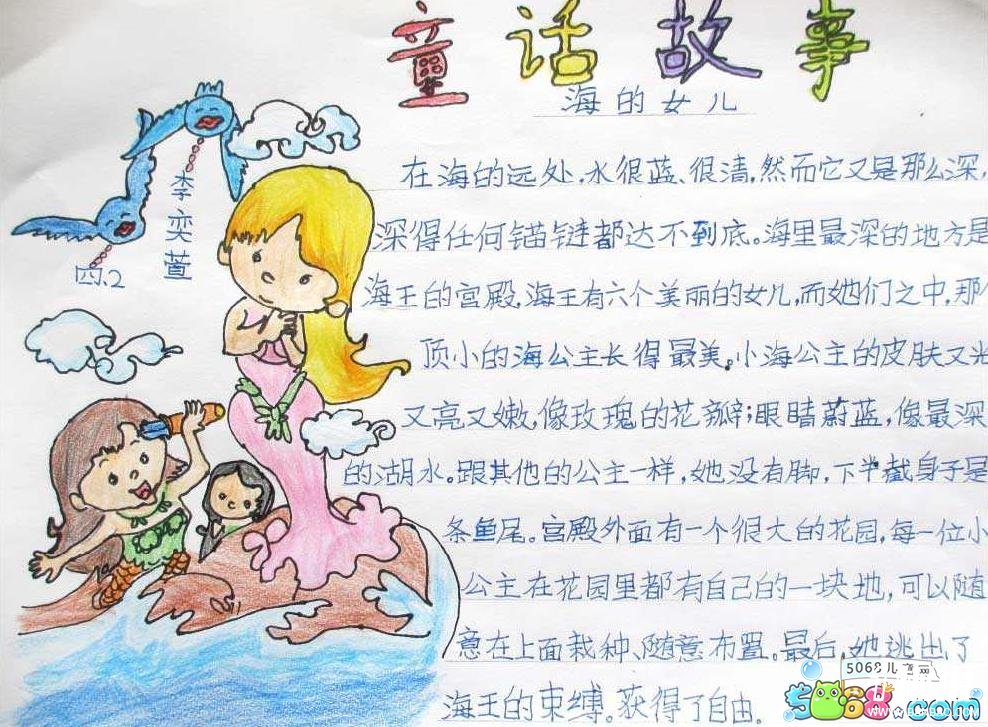 童话故事
海的女儿
李奕萱
四.2
在海的远处,水很蓝、很清,然而它又是那么深,
深得任何锚链都达不到底。海里最深的地方是
海王的宫殿,海王有六个美丽的女儿,而她们之中,那个
顶小的海公主长得最美。小海公主的皮肤又光
又亮又嫩,像玫瑰的花瓣;眼睛蔚蓝,像最深
的湖水。跟其他的公主一样,她没有脚,下半截身子是
条鱼尾。宫殿外面有一个很大的花园,每一位小
公主在花园里都有自己的一块地,可以随
意在上面栽种、随意布置。最后,她逃出了
海王的束缚。获得了自由。
5068儿童网
5068.com